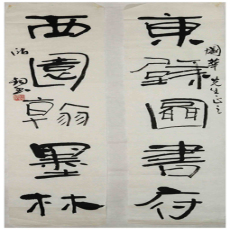 東壁圖書府
先生正之
西園翰墨林